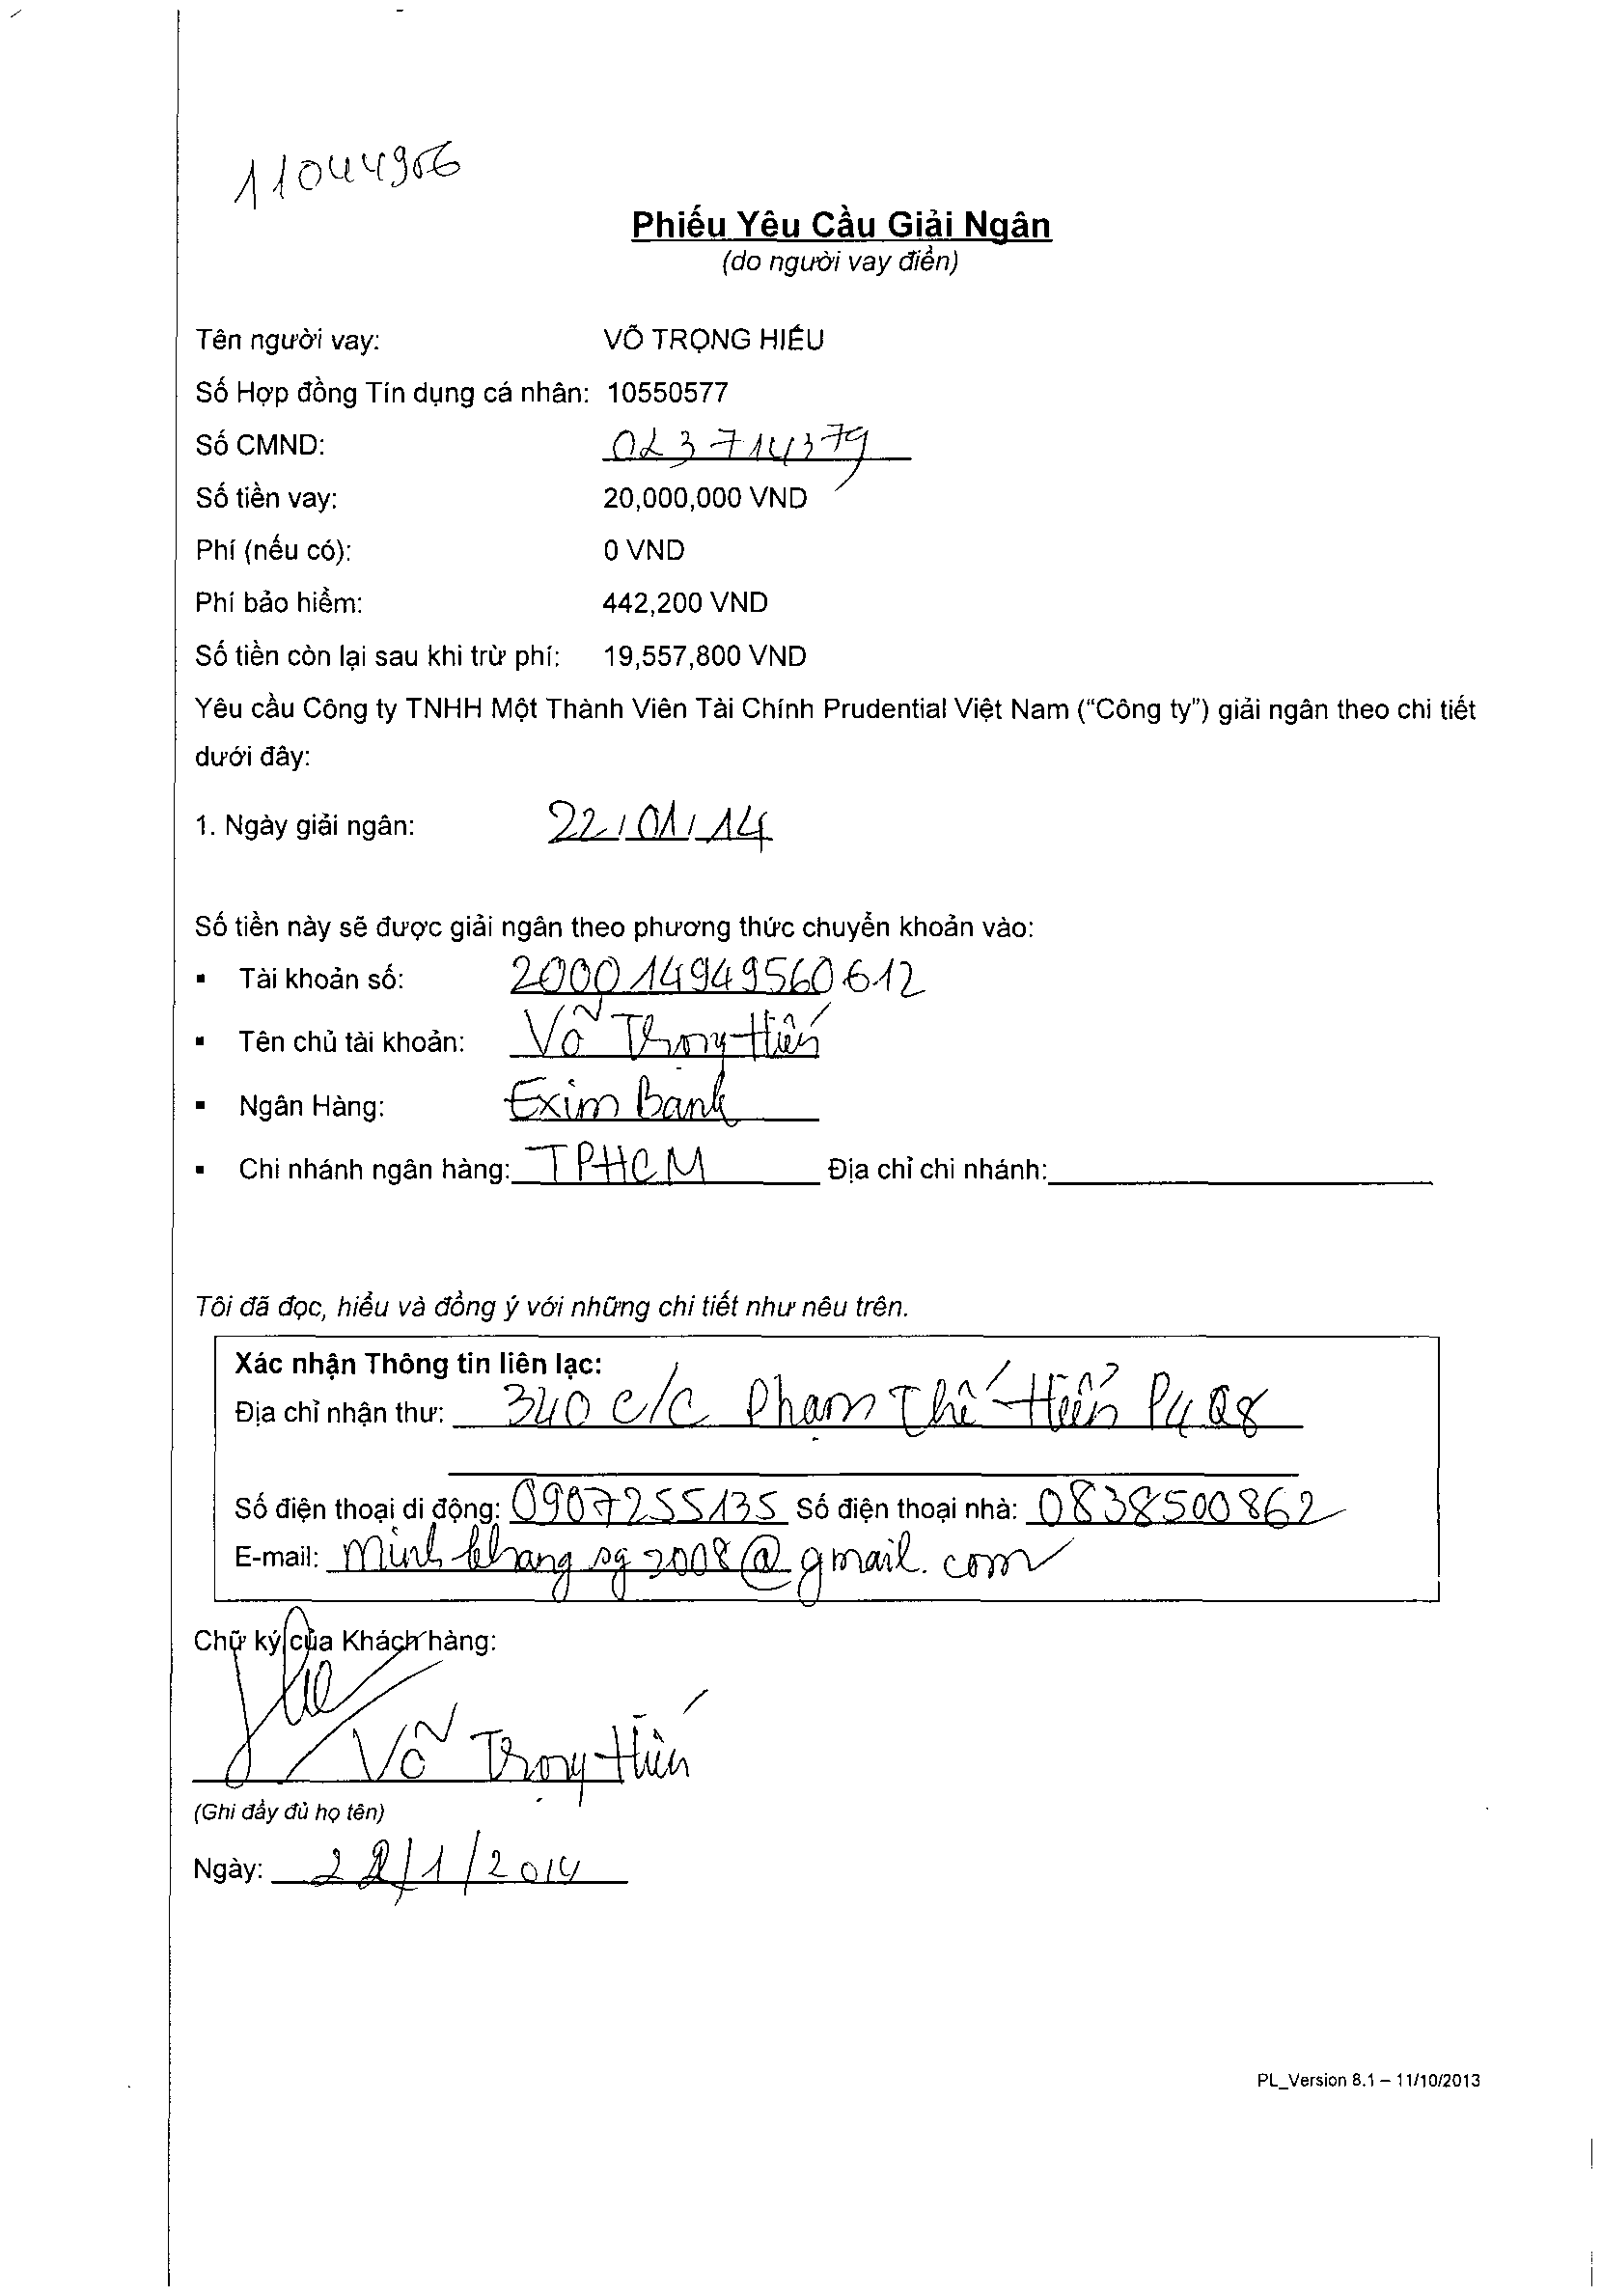 11044956
Phiếu Yêu Cầu Giải Ngân
(do người vay điền)
Tên người vay: VÕ TRỌNG HIẾU
Số Hợp đồng Tín dụng cá nhân: 10550577
Số CMND: 023714379
Số tiền vay: 20,000,000 VND
Phí (nếu có): 0 VND
Phí bảo hiểm: 442,200 VND
Số tiền còn lại sau khi trừ phí: 19,557,800 VND
Yêu cầu Công ty TNHH Một Thành Viên Tài Chính Prudential Việt Nam (“Công ty”) giải ngân theo chi tiết
dưới đây:
1. Ngày giải ngân: 22/01/14
Số tiền này sẽ được giải ngân theo phương thức chuyển khoản vào:
▪ Tài khoản số: 200014949560612
▪ Tên chủ tài khoản: Võ Trọng Hiếu
▪ Ngân Hàng: Exim Bank
▪ Chi nhánh ngân hàng: TPHCM Địa chỉ chi nhánh:
Tôi đã đọc, hiểu và đồng ý với những chi tiết như nêu trên.
Xác nhận Thông tin liên lạc:
Địa chỉ nhận thư: 340 C/C Phạm Thế Hiển P4 Q8
Số điện thoại di động: 0907255135 Số điện thoại nhà: 0838500862
E-mail: minhkhangsg2008@gmail.com
Chữ ký của Khách hàng:
Võ Trọng Hiếu
(Ghi đầy đủ họ tên)
Ngày: 22/1/2014
PL_Version 8.1 – 11/10/2013